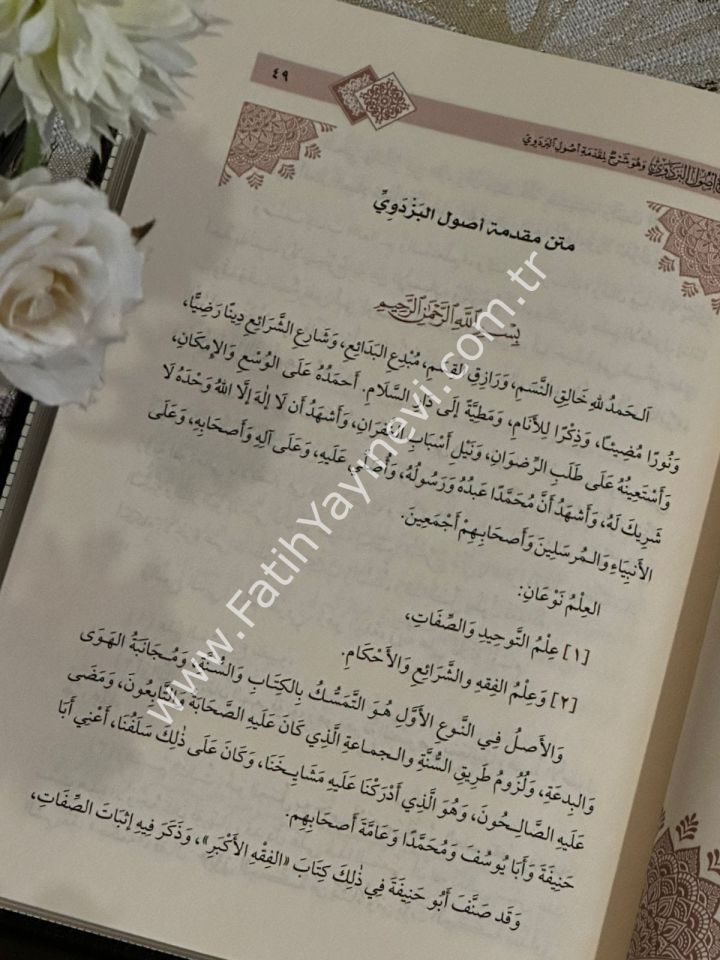 ٤٩
أصول البزدوي وهو شرح لمقدمة أصول البزدوي
متن مقدمة أصول البَزْدَوِيِّ
بِسْمِ اللَّهِ الرَّحْمَٰنِ الرَّحِيمِ
اَلحَمدُ للهِ خَالِقِ النَّسَمِ، وَرَازِقِ القِسَمِ، مُبْدِعِ البَدَائِعِ، وَشَارِعِ الشَّرَائِعِ دِينًا رَضِيًّا،
وَنُورًا مُضِيئًا، وَذِكْرًا لِلأَنَامِ، وَمَطِيَّةً إِلَى دَارِ السَّلَامِ. أَحمَدُهُ عَلَى الوُسْعِ وَالإِمكَانِ،
وَأَسْتَعِينُهُ عَلَى طَلَبِ الرِّضوَانِ، وَنَيْلِ أَسْبَابِ الغُفرَانِ، وَأَشْهَدُ أَن لَا إِلهَ إِلَّا اللهُ وَحْدَهُ لَا
شَرِيكَ لَهُ، وَأَشْهَدُ أَنَّ مُحَمَّدًا عَبدُهُ وَرَسُولُهُ، وَأُصَلِّي عَلَيهِ، وَعَلَى آلِهِ وَأَصحَابِهِ، وَعَلَى
الأَنبِيَاءِ وَالمُرسَلِينَ وَأَصحَابِهِمْ أَجْمَعِينَ.
العِلْمُ نَوْعَانِ:
[١] عِلْمُ التَّوحِيدِ وَالصِّفَاتِ،
[٢] وَعِلْمُ الفِقهِ والشَّرَائِعِ وَالأَحْكَامِ.
وَالأَصلُ فِي النَّوعِ الأَوَّلِ هُوَ التَّمَسُّكُ بِالكِتَابِ وَالسُّنَّةِ، وَمُجَانَبَةُ الهَوَى
وَالبِدعَةِ، وَلُزُومُ طَرِيقِ السُّنَّةِ والجماعةِ الَّذِي كَانَ عَلَيهِ الصَّحَابَةُ وَالتَّابِعُونَ، وَمَضَى
عَلَيهِ الصَّالِحُونَ، وَهُوَ الَّذِي أَدْرَكْنَا عَلَيهِ مَشَايِخَنَا، وَكَانَ عَلَى ذٰلِكَ سَلَفُنَا، أَعْنِي أَبَا
حَنِيفَةَ وَأَبَا يُوسُفَ وَمُحَمَّدًا وَعَامَّةَ أَصحَابِهِم.
وَقَد صَنَّفَ أَبُو حَنِيفَةَ فِي ذٰلِكَ كِتَابَ «الفِقْهِ الأَكْبَرِ»، وَذَكَرَ فِيهِ إِثبَاتَ الصِّفَاتِ،
www.FatihYayinevi.com.tr